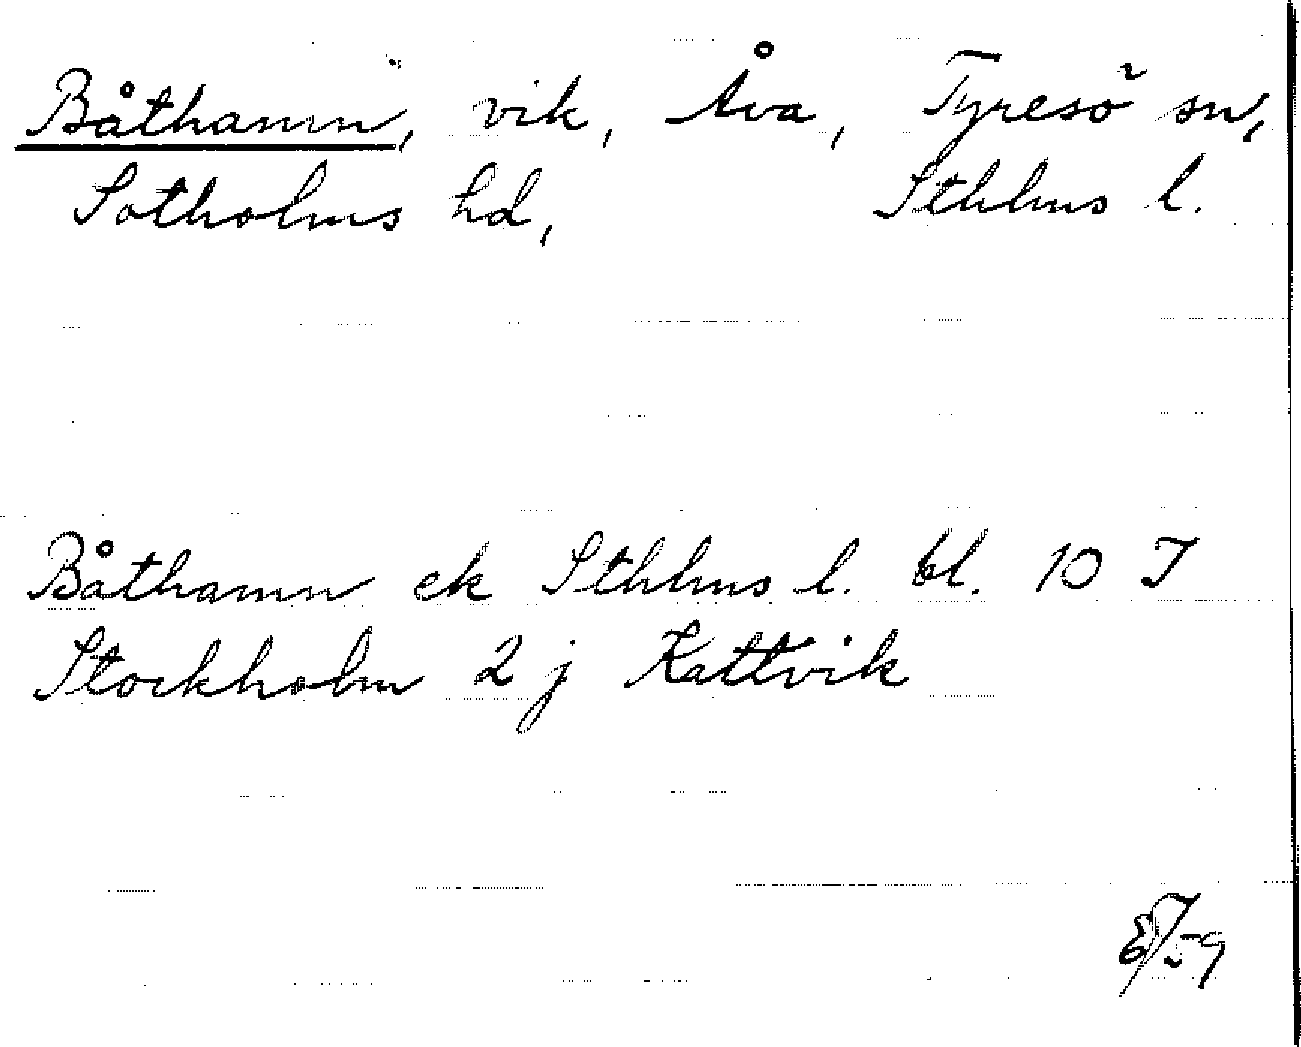 Båthamn, vik, Åva, Tyresö sn,
Sotholms hd, Sthlms l.
Båthamn ek Sthlms l. bl. 10 I
Stockholm 2 j Kattvik